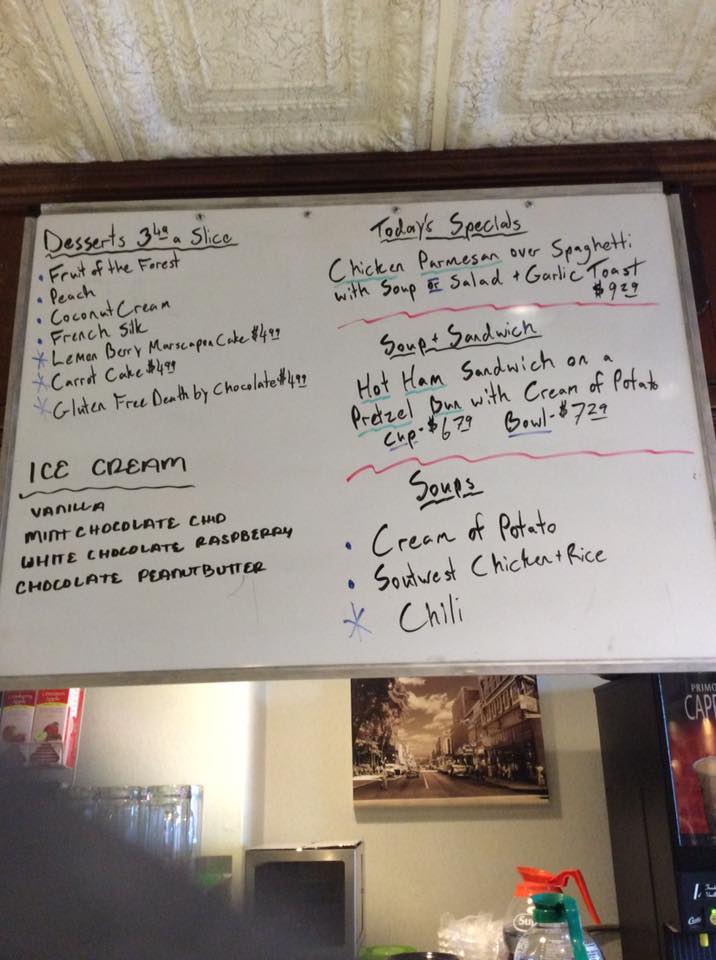 Desserts 3.49 a Slice
• Fruit of the Forest
• Peach
• Coconut Cream
• French Silk
* Lemon Berry Marscapon Cake $4.99
* Carrot Cake $4.99
* Gluten Free Death by Chocolate $4.99
ICE CREAM
VANILLA
MINT CHOCOLATE CHIP
WHITE CHOCOLATE RASPBERRY
CHOCOLATE PEANUTBUTTER
Today's Specials
Chicken Parmesan over Spaghetti
with Soup or Salad + Garlic Toast
$9.29
Soup + Sandwich
Hot Ham Sandwich on a
Pretzel Bun with Cream of Potato
Cup - $6.79 Bowl - $7.29
Soups
• Cream of Potato
• Soutwest Chicken + Rice
* Chili
PRIMO
CAP